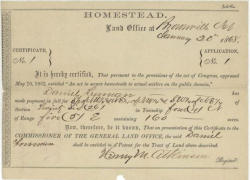 HOMESTEAD.
Land Office at Brownville Neb
January 20th 1868.
CERTIFICATE, APPLICATION,
No 1 No 1
It is hereby certified, That pursuant to the provisions of the act of Congress, approved
May 20, 1862, entitled "An act to secure homesteads to actual settlers on the public domain,"
Daniel Freeman has
made payment in full for
Section 26 in Township four (4) N
of Range five (5) E containing 160 acres.
Now, therefore, be it known, That on presentation of this Certificate to the
COMMISSIONER OF THE GENERAL LAND OFFICE, the said Daniel
Freeman shall be entitled to a Patent for the Tract of Land above described.
Henry M. Atkinson
Register.